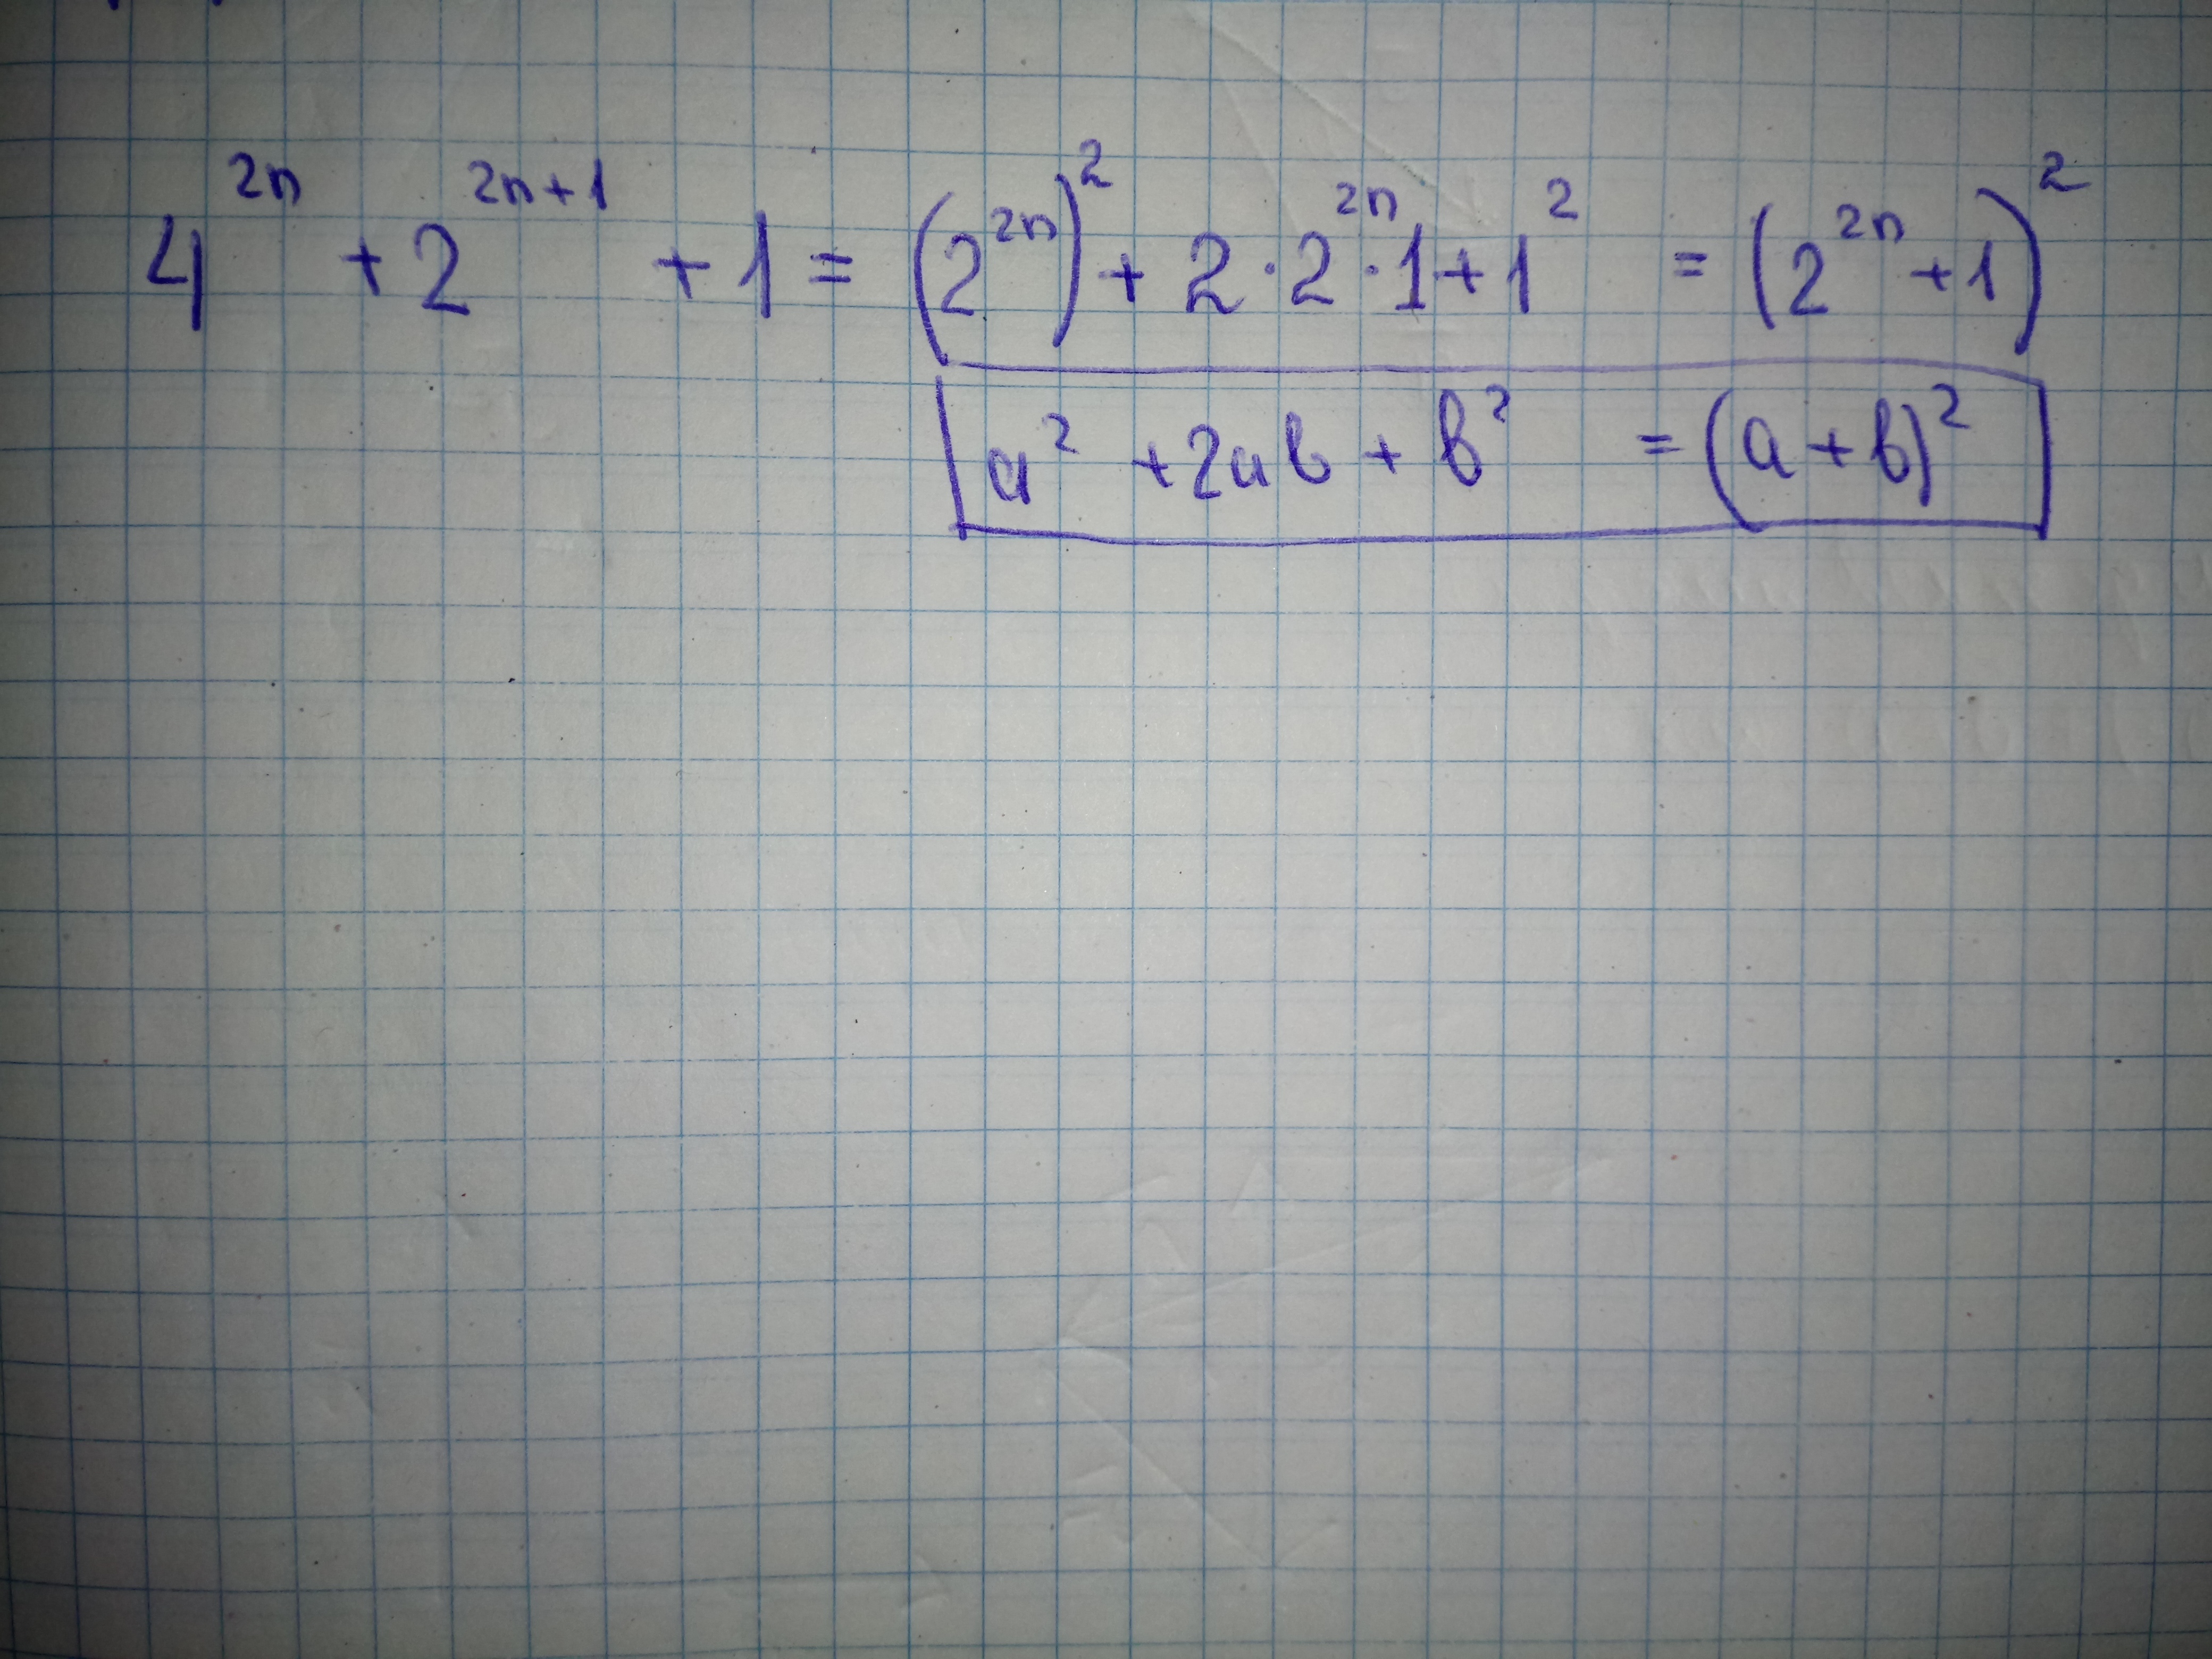 4^{2n} + 2^{2n+1} + 1 = (2^{2n})^2 + 2 · 2^{2n} · 1 + 1^2 = (2^{2n} + 1)^2
a^2 + 2ab + b^2 = (a + b)^2